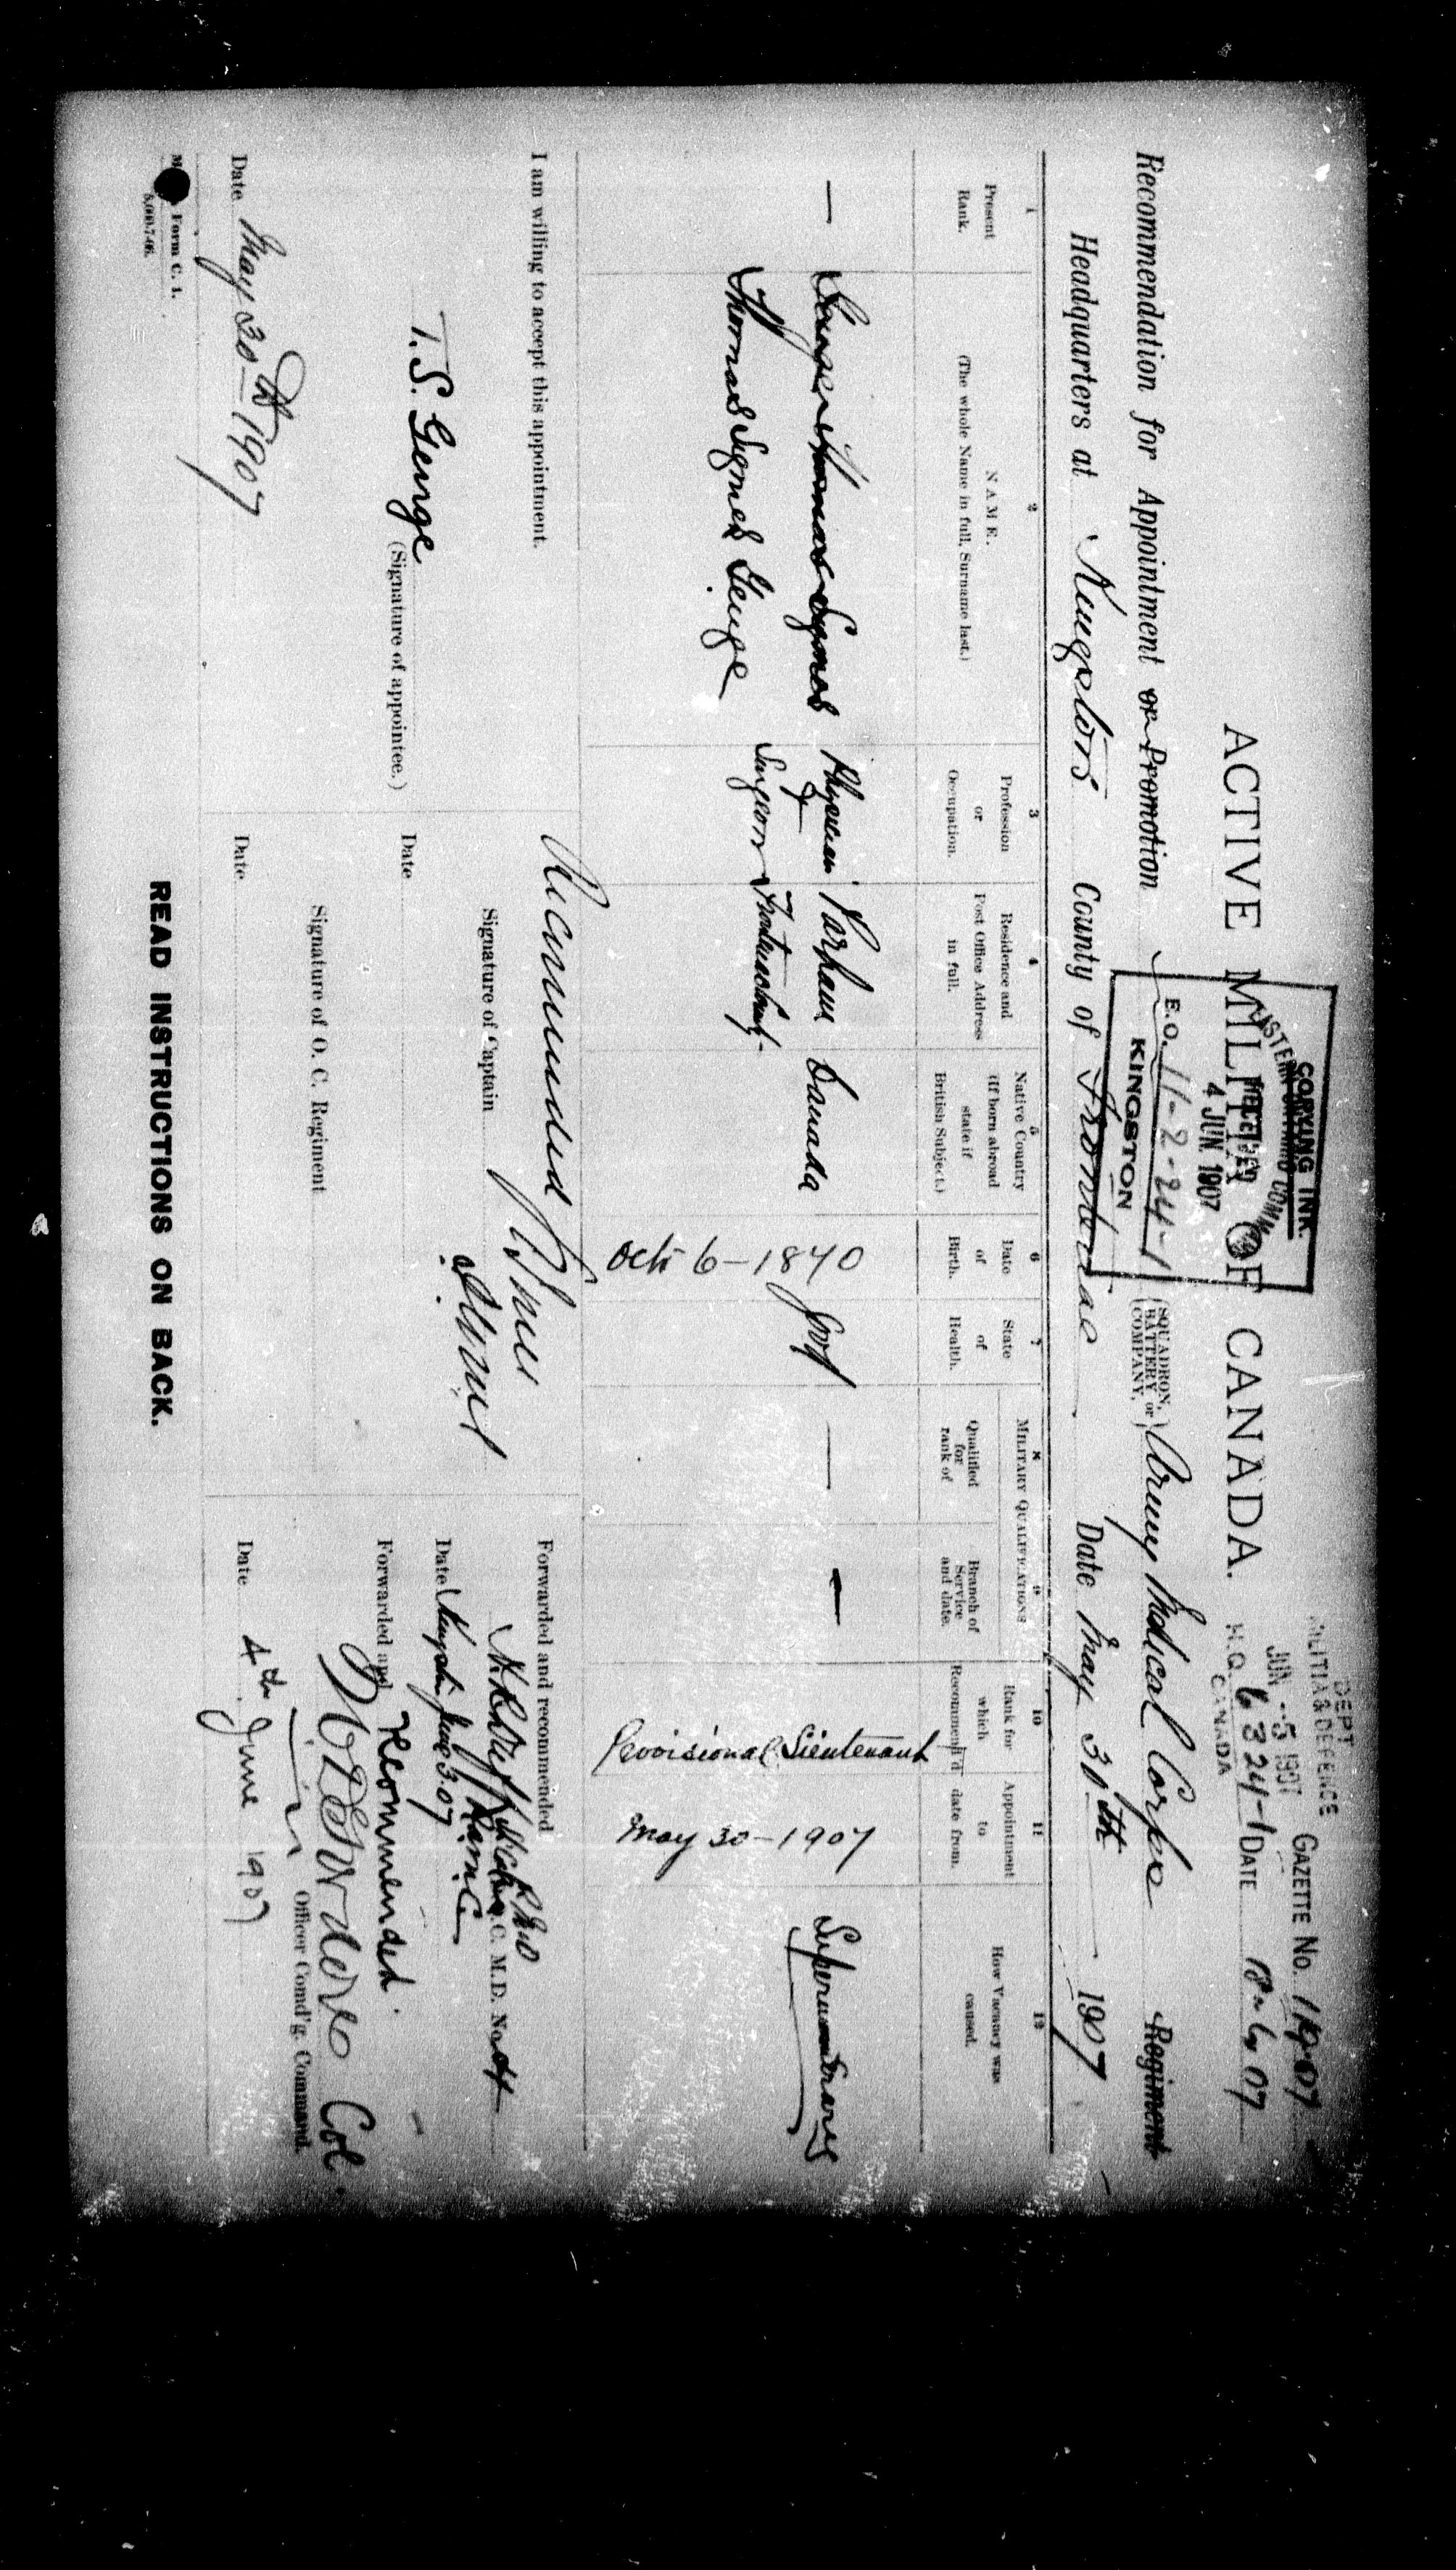 DEPT
MILITIA & DEFENCE
JUN -5 1907
H.Q. 6324-1
CANADA
GAZETTE No. 119-07
DATE 18-6-07
COPYING INK.
RECEIVED
4 JUN 1907
E.O. 11-2-24-1
KINGSTON
ACTIVE MILITIA OF CANADA.
Recommendation for Appointment or Promotion
(SQUADRON, BATTERY, or COMPANY.) Army Medical Corps Regiment
Headquarters at Kingston County of Frontenac Date May 30th 1907
1 Present Rank.
2 NAME. (The whole Name in full, Surname last.)
3 Profession or Occupation.
4 Residence and Post Office Address in full.
5 Native Country (If born abroad state if British Subject.)
6 Date of Birth.
7 State of Health.
MILITARY QUALIFICATIONS
8 Qualified for rank of
9 Branch of Service and date.
10 Rank for which Recommend'd
11 Appointment to date from.
12 How Vacancy was caused.
—
George Thomas Signes
Thomas Signes George
Physician & Surgeon
Parham Frontenac County
Canada
Oct 6-1870
Good
—
—
Provisional Lieutenant
May 30-1907
Supernumerary
I am willing to accept this appointment.
T. S. George
(Signature of appointee.)
Date May 30th 1907
Recommended
Signature of Captain
Date
Signature of O. C. Regiment
Date
Forwarded and recommended
P.M.O
C. M.D. No 4
Date Kingston June 3.07
Forwarded and Recommended.
Col.
Officer Comd'g. Command.
Date 4th June 1907
Form C. 1.
5,000-7-06.
READ INSTRUCTIONS ON BACK.